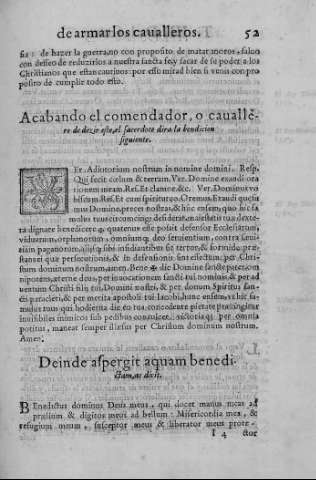 de armar los caualleros. 52
sia: de hazer la guerra, no con proposito de matar moros, saluo
con desseo de reduzirlos a nuestra sancta fey sacar de su poder a los
Christianos que estan cautiuos: por esso mirad bien si venis con pro
posito de cumplir todo esto.
Acabando el comendador, o cauallе-
ro de dezir esto, el sacerdote dira la bendicion
siguiente.
Er. Adiutorium nostrum in nomine domini. Resp.
Qui fecit cœlum & terram. Ver. Domine exaudi ora
tionem meam. Res. Et clamor &c. Ver. Dominus vo
biscum. Res. Et cum spiritu tuo. Oremus. Exaudi quęsu
mus Domine, preces nostras, & hunc ensem, quo hic fa
mulus tuus circumcingi desiderat, maiestatis tuæ dexte
ra dignare benedicere, quatenus esse possit defensor Ecclesiarum,
viduarum, orphanorum, omniumq; deo seruientium, contra sæui
tiam paganorum, alijsq; sibi insidiantibus sit terror, & formido, præ
stans ei que persecutionis, & in defensionis sint effectum: per Chri
stum dominum nostrum, amen. Benedic domine sancte pater, om
nipotens, æterne deus, per inuocationem sancti tui nominis, & per ad
uentum Christi filij tui, Domini nostri, & per donum Spiritus san-
cti paracleti, & per merita apostoli tui Iacobi, hunc ensem, vt hic fa-
mulus tuus qui hodierna die eo tua concedente pietate præcingitur
inuisibiles inimicos sub pedibus conculcet, victoriaq; per omnia
potitus, maneat semper illæsus per Christum dominum nostrum.
Amen.
Deinde aspergit aquam benedi-
ctam, ac dicit.
BEnedictus dominus Deus meus, qui docet manus meas ad
prælium & digitos meos ad bellum: Misericordia mea, &
refugium meum, susceptor meus & liberator meus prote-
I 4 ctor